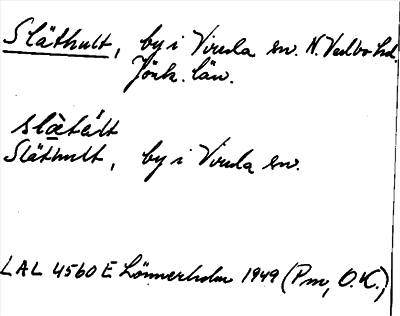 Släthult, by i Virsla sn. N. Vedbo hd.
Jönk. län.
slὰ̀tél̀t
Släthult, by i Virsla sn.
LAL 4560 E Lönnerholm 1949 (Pm, O.K.)